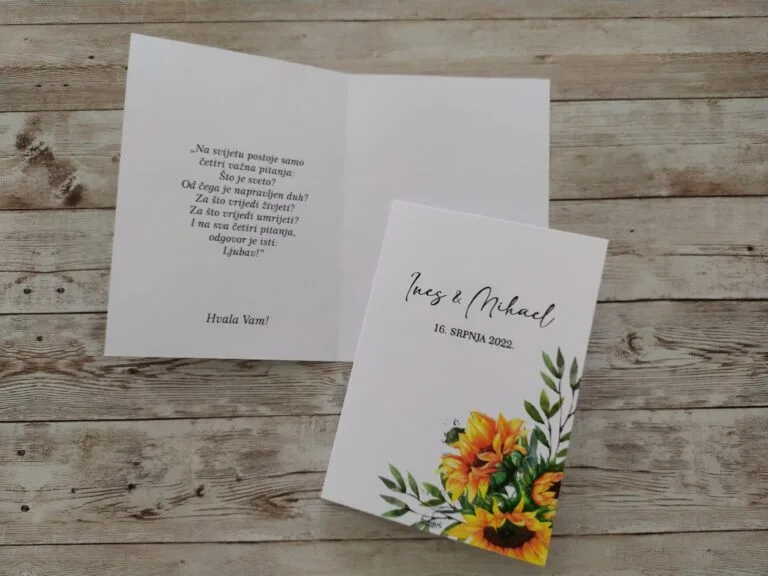 „Na svijetu postoje samo
četiri važna pitanja:
Što je sveto?
Od čega je napravljen duh?
Za što vrijedi živjeti?
Za što vrijedi umrijeti?
I na sva četiri pitanja,
odgovor je isti:
Ljubav!“
Hvala Vam!
Ines & Mihael
16. SRPNJA 2022.